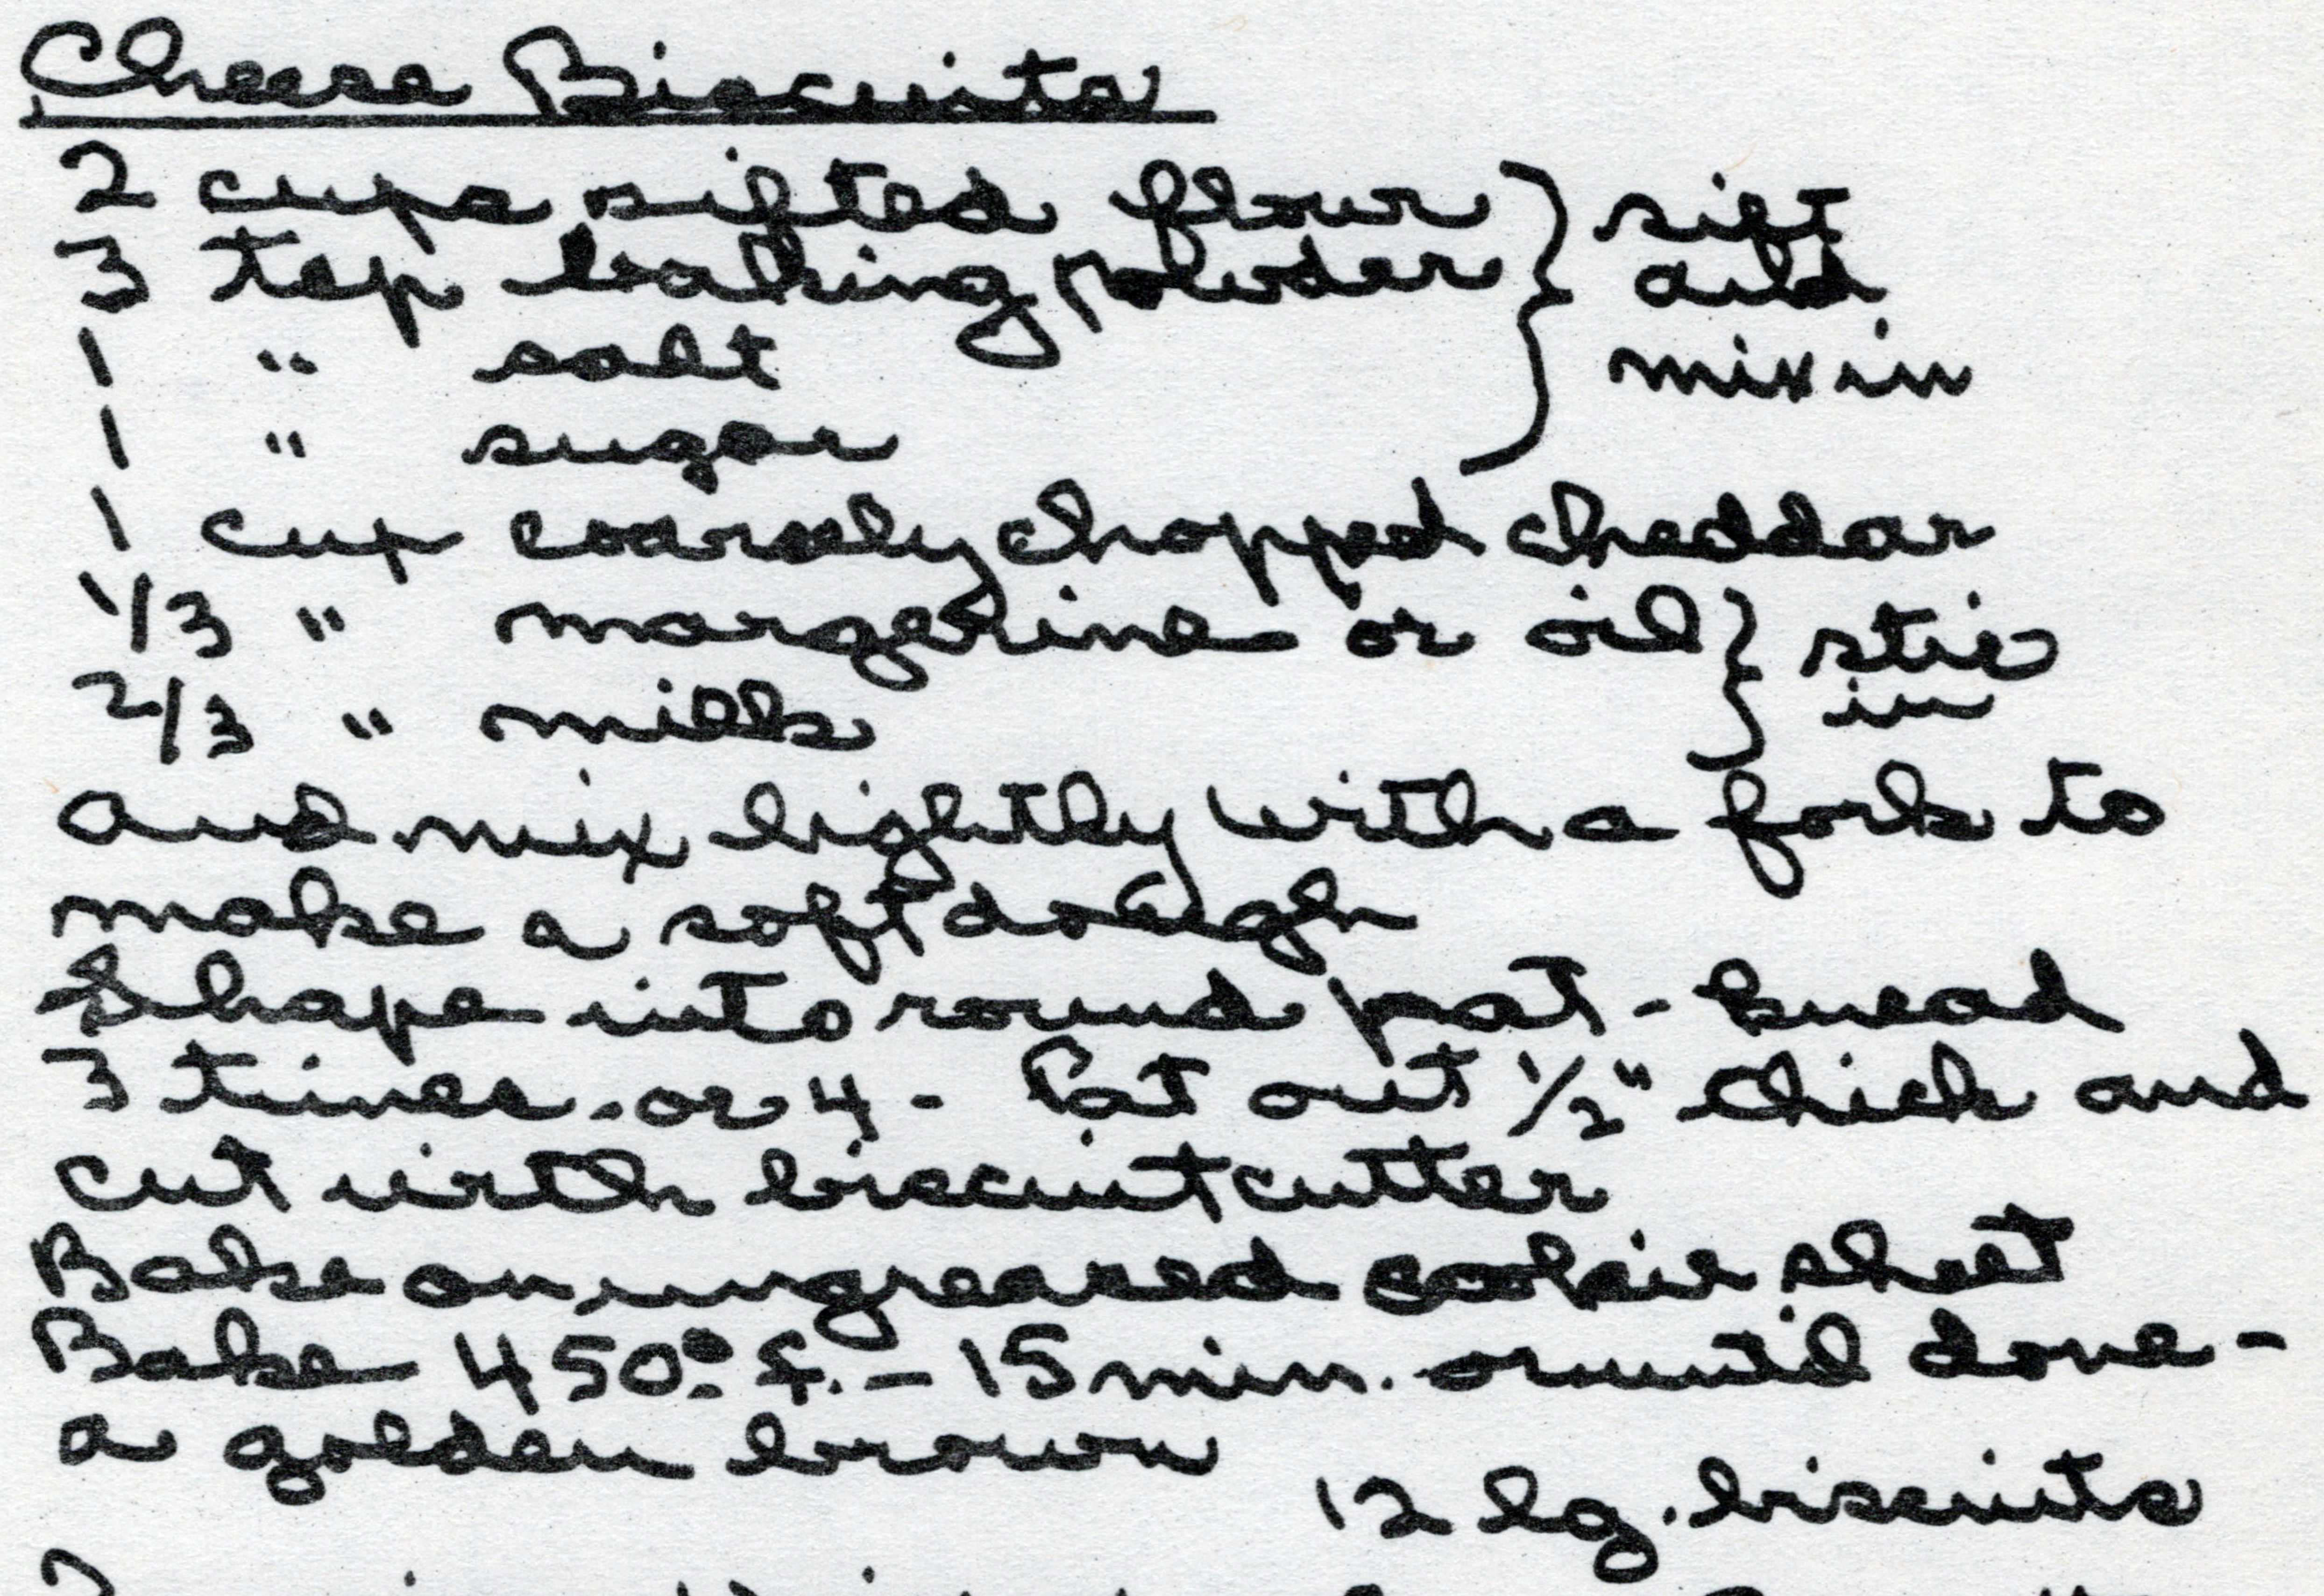 Cheese Biscuits
2 cups sifted flour } sift
3 tsp baking powder and
1 " salt mix in
1 " sugar
1 cup coarsely chopped cheddar
1/3 " margerine or oil } stir
2/3 " milk in
and mix lightly with a fork to
make a soft dough
Shape into round pat - knead
3 times - or 4 - Pat out 1/2" thick and
cut with biscuit cutter
Bake on ungreased cookie sheet
Bake 450° f. - 15 min. or until done -
a golden brown
12 lg. biscuits